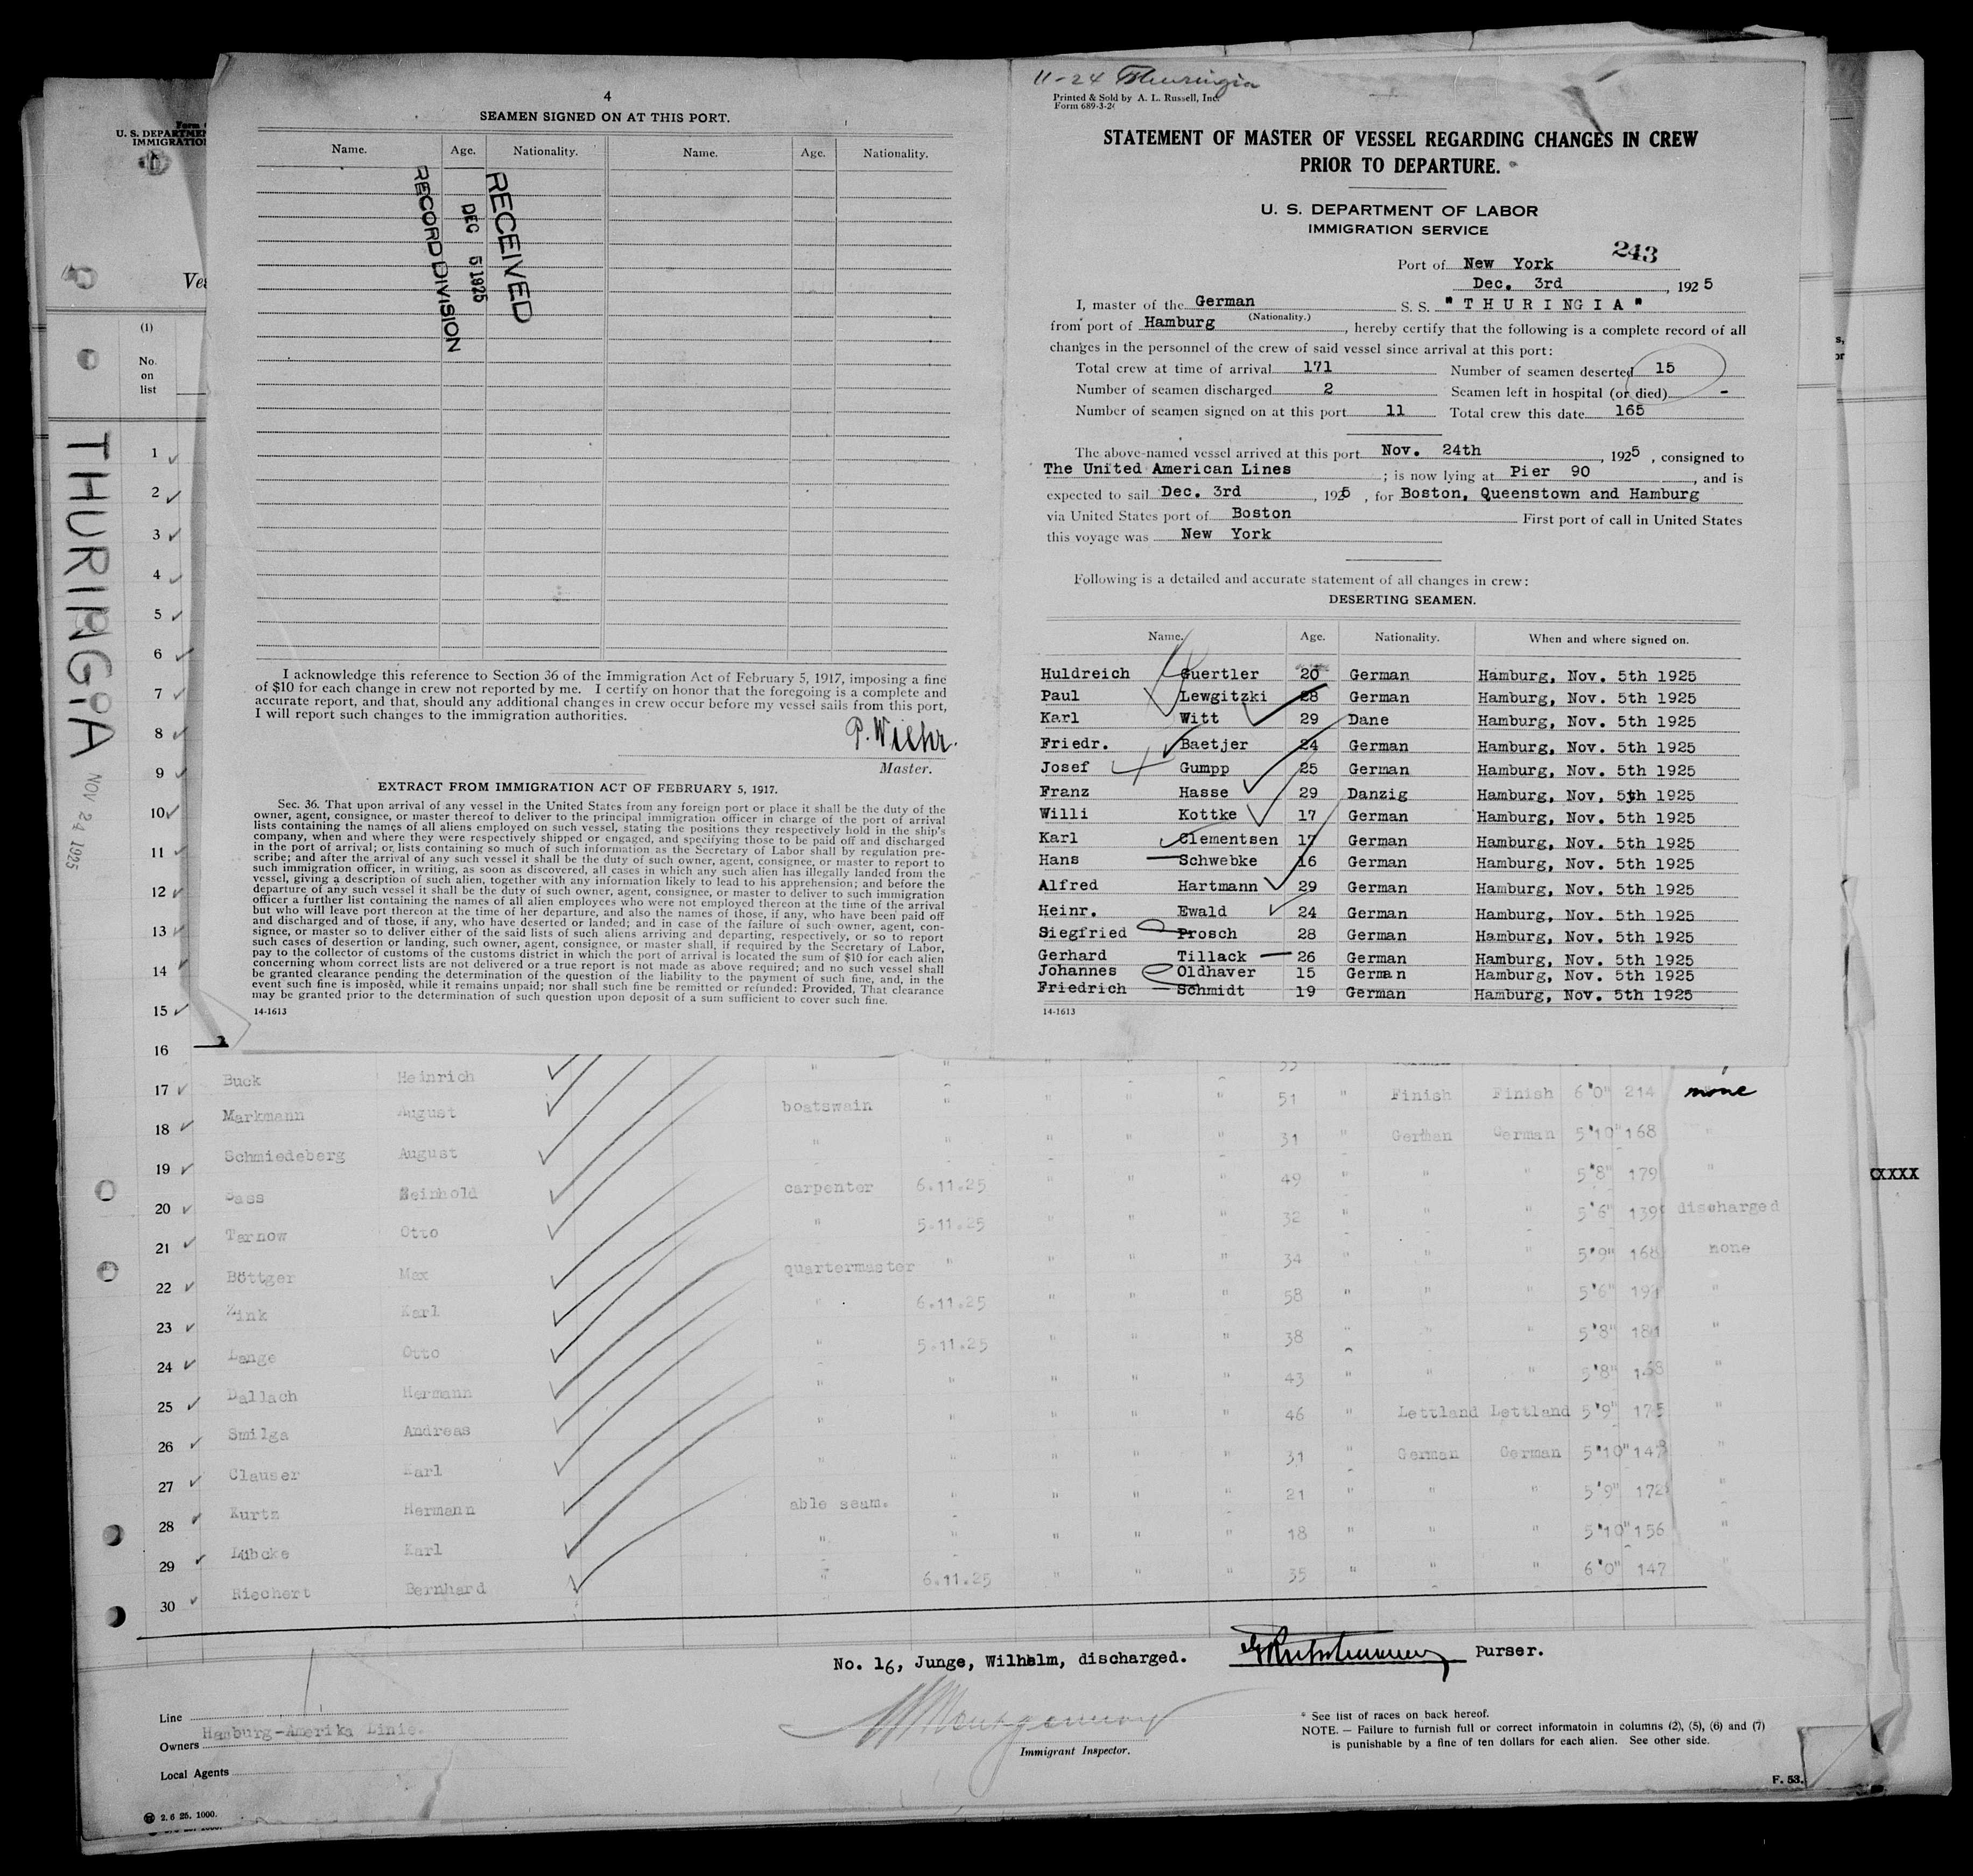 4
SEAMEN SIGNED ON AT THIS PORT.
Name. Age. Nationality. Name. Age. Nationality.
RECEIVED
DEC 5 1925
RECORD DIVISION
I acknowledge this reference to Section 36 of the Immigration Act of February 5, 1917, imposing a fine
of $10 for each change in crew not reported by me. I certify on honor that the foregoing is a complete and
accurate report, and that, should any additional changes in crew occur before my vessel sails from this port,
I will report such changes to the immigration authorities.
P. Wiehr.
Master.
EXTRACT FROM IMMIGRATION ACT OF FEBRUARY 5, 1917.
Sec. 36. That upon arrival of any vessel in the United States from any foreign port or place it shall be the duty of the
owner, agent, consignee, or master thereof to deliver to the principal immigration officer in charge of the port of arrival
lists containing the names of all aliens employed on such vessel, stating the positions they respectively hold in the ship's
company, when and where they were respectively shipped or engaged, and specifying those to be paid off and discharged
in the port of arrival; or lists containing so much of such information as the Secretary of Labor shall by regulation pre-
scribe; and after the arrival of any such vessel it shall be the duty of such owner, agent, consignee, or master to report to
such immigration officer, in writing, as soon as discovered, all cases in which any such alien has illegally landed from the
vessel, giving a description of such alien, together with any information likely to lead to his apprehension; and before the
departure of any such vessel it shall be the duty of such owner, agent, consignee, or master to deliver to such immigration
officer a further list containing the names of all alien employees who were not employed thereon at the time of the arrival
but who will leave port thereon at the time of her departure, and also the names of those, if any, who have been paid off
and discharged and of those, if any, who have deserted or landed; and in case of the failure of such owner, agent, con-
signee, or master so to deliver either of the said lists of such aliens arriving and departing, respectively, or so to report
such cases of desertion or landing, such owner, agent, consignee, or master shall, if required by the Secretary of Labor,
pay to the collector of customs of the customs district in which the port of arrival is located the sum of $10 for each alien
concerning whom correct lists are not delivered or a true report is not made as above required; and no such vessel shall
be granted clearance pending the determination of the question of the liability to the payment of such fine, and, in the
event such fine is imposed, while it remains unpaid; nor shall such fine be remitted or refunded: Provided, That clearance
may be granted prior to the determination of such question upon deposit of a sum sufficient to cover such fine.
14-1613
11-24 Thuringia
Printed & Sold by A. L. Russell, Inc.
Form 689-3-2
STATEMENT OF MASTER OF VESSEL REGARDING CHANGES IN CREW
PRIOR TO DEPARTURE.
U. S. DEPARTMENT OF LABOR
IMMIGRATION SERVICE
243
Port of New York
Dec. 3rd, 1925
I, master of the German S. S. "THURINGIA"
(Nationality.)
from port of Hamburg, hereby certify that the following is a complete record of all
changes in the personnel of the crew of said vessel since arrival at this port:
Total crew at time of arrival 171 Number of seamen deserted 15
Number of seamen discharged 2 Seamen left in hospital (or died) -
Number of seamen signed on at this port 11 Total crew this date 165
The above-named vessel arrived at this port Nov. 24th, 1925, consigned to
The United American Lines; is now lying at Pier 90, and is
expected to sail Dec. 3rd, 1925, for Boston, Queenstown and Hamburg
via United States port of Boston First port of call in United States
this voyage was New York
Following is a detailed and accurate statement of all changes in crew:
DESERTING SEAMEN.
Name. Age. Nationality. When and where signed on.
Huldreich Guertler 20 German Hamburg, Nov. 5th 1925
Paul Lewgitzki 28 German Hamburg, Nov. 5th 1925
Karl Witt 29 Dane Hamburg, Nov. 5th 1925
Friedr. Baetjer 24 German Hamburg, Nov. 5th 1925
Josef Gumpp 25 German Hamburg, Nov. 5th 1925
Franz Hasse 29 Danzig Hamburg, Nov, 5th 1925
Willi Kottke 17 German Hamburg, Nov. 5th 1925
Karl Clementsen 17 German Hamburg, Nov. 5th 1925
Hans Schwebke 16 German Hamburg, Nov. 5th 1925
Alfred Hartmann 29 German Hamburg, Nov. 5th 1925
Heinr. Ewald 24 German Hamburg, Nov. 5th 1925
Siegfried Prosch 28 German Hamburg, Nov. 5th 1925
Gerhard Tillack 26 German Hamburg, Nov. 5th 1925
Johannes Oldhaver 15 German Hamburg, Nov. 5th 1925
Friedrich Schmidt 19 German Hamburg, Nov. 5th 1925
14-1613
Form
U. S. DEPARTMEN
IMMIGRATIO
Ves
(1)
No.
on
list
THURINGIA
NOV 24 1925
1
2
3
4
5
6
7
8
9
10
11
12
13
14
15
16
17 Buck Heinrich " " " " 51 " Finish Finish 6'0" 214 none
18 Markmann August boatswain " " " " 31 " German German 5'10" 168 "
19 Schmiedeberg August " " " " " 49 " " " 5'8" 179 "
20 Sass Reinhold carpenter 6.11.25 " " " 32 " " " 5'6" 139 discharged
21 Tarnow Otto " 5.11.25 " " " 34 " " " 5'9" 168 none
22 Böttger Max quartermaster " " " " 58 " " " 5'6" 191 "
23 Zink Karl " 6.11.25 " " " 38 " " " 5'8" 181 "
24 Lange Otto " 5.11.25 " " " 43 " " " 5'8" 168 "
25 Dallach Hermann " " " " " 46 " Lettland Lettland 5'9" 175 "
26 Smilga Andreas " " " " " 31 " German German 5'10" 148 "
27 Clauser Karl " " " " " 21 " " " 5'9" 172 "
28 Kurtz Hermann able seam. " " " " 18 " " " 5'10" 156 "
29 Lübcke Karl " " " " " 35 " " " 6'0" 147 "
30 Riechert Bernhard " 6.11.25
XXXXX
No. 16, Junge, Wilhelm, discharged. Purser.
Montgomery
Immigrant Inspector.
Line
Owners Hamburg-Amerika Linie.
Local Agents
* See list of races on back hereof.
NOTE. — Failure to furnish full or correct informatoin in columns (2), (5), (6) and (7)
is punishable by a fine of ten dollars for each alien. See other side.
F. 53.
2. 6 25. 1000.